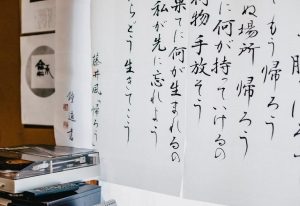 もう 帰ろう
ぬ場所 帰ろう
に何が 持って いけるの
物 手放そう
果てに何が 生まれるの
私が先に 忘れよう
らどう 生きてこう
藤井風 帰ろう
書